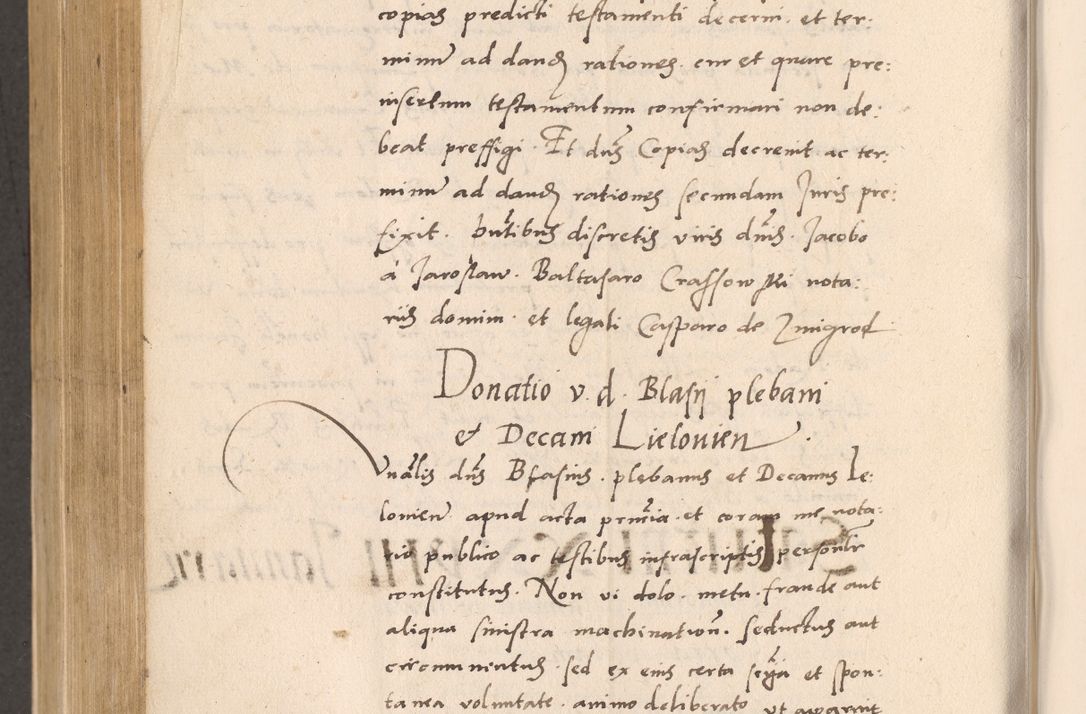 copias predicti testamenti decerni. et ter:
minu ad dand rationes. cur et quare pre:
insertum testamentum confirmari non de:
beat preffigi. Et dns Copias decrevit ac ter:
minu ad dand rationes secundam Juris pre:
fixit. pntibus discretis viris dnis. Jacobo
à Jaroslaw. Baltasaro Crassowski nota:
riis domin. et legali Casparo de Zmigrod
Donatio v. d. Blasij plebani
et Decani Lielovien.
Vnalis dns Blasius. plebanus et Decanus Le:
lovien apud acta pntia et coram me nota:
rio publico ac testibus infrascriptis personlr
constitutus. Non vi dolo. metu. fraude aut
aliqua sinistra machination. seductus aut
circumventus. sed ex eius certa scia et spon:
tanea voluntate. animo deliberato ut apparuit